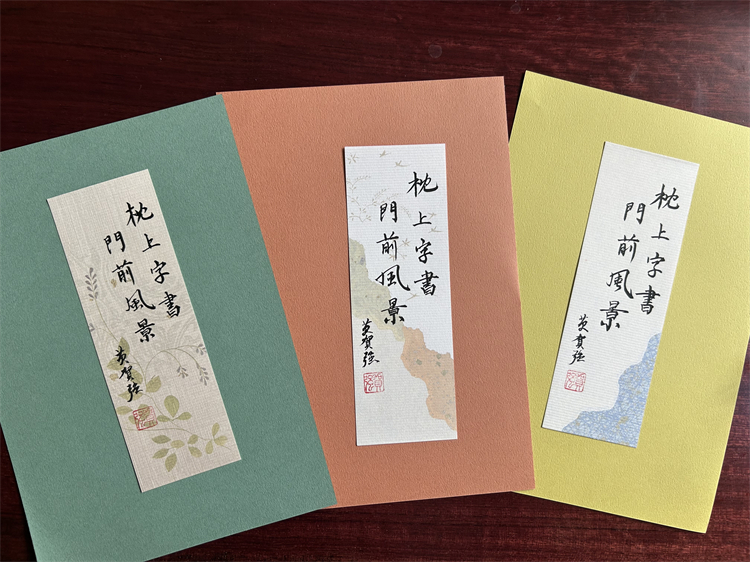 枕上字書
門前風景
賀強
枕上字書
門前風景
賀強
枕上字書
門前風景
賀強